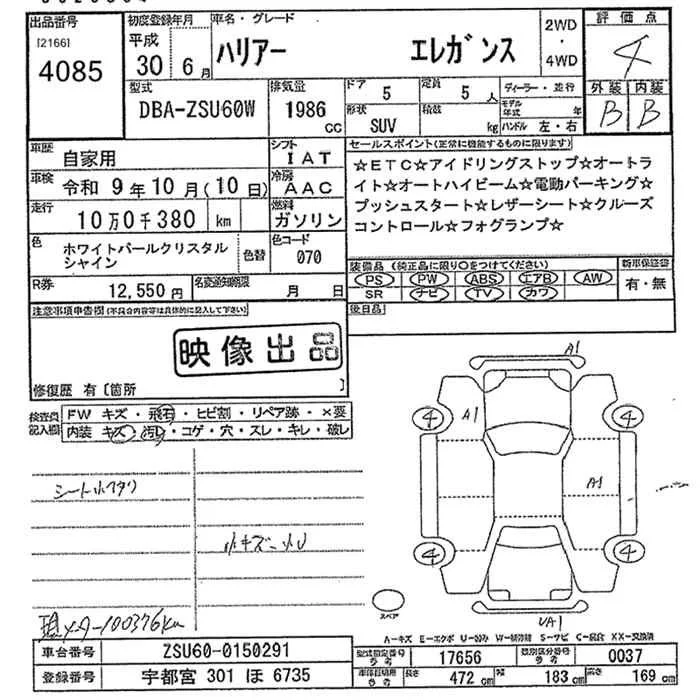 出品番号
[2166]
4085
初度登録年月
平成
30 6月
車名・グレード
ハリアー エレガンス
2WD
・
4WD
評価点
4
外装 内装
B B
型式
DBA-ZSU60W
排気量
1986
CC
ドア 5
定員 5 人
形状
SUV
積載
kg
ディーラー・並行
モデル
年式 年
ハンドル 左・右
車歴
自家用
シフト
IAT
車検 令和 9年10月(10日)
冷房
AAC
走行
10万0千380 km
燃料
ガソリン
色
ホワイトパールクリスタル
シャイン
色替
色コード
070
R券
12,550円
名変通知期限
月 日
セールスポイント(正常に機能するものに限ります)
☆ETC☆アイドリングストップ☆オートラ
イト☆オートハイビーム☆電動パーキング☆
プッシュスタート☆レザーシート☆クルーズ
コントロール☆フォグランプ☆
装備品(純正品に限り○をつけてください)
PS PW ABS エアB AW
SR ナビ TV カワ
新車保証書
有・無
後日品
注意事項申告欄(不具合内容等は具体的に記入して下さい)
映像出品
修復歴 有〔箇所 〕
検査員
記入欄
FW キズ・飛石・ヒビ割・リペア跡・×要
内装 キズ・汚レ・コゲ・穴・スレ・キレ・破レ
シート
小キズ
メーター100376km
A1
4 A1 4
A1
4 4
スペア
A-キズ E-エクボ U-凹み W-補修跡 S-サビ C-腐食 XX-交換済
車台番号 ZSU60-0150291
登録番号 宇都宮 301 ほ 6735
型式指定番号
参考
17656
類別区分番号
参考
0037
車体証明用
参考
長さ 472 cm 幅 183 cm 高さ 169 cm